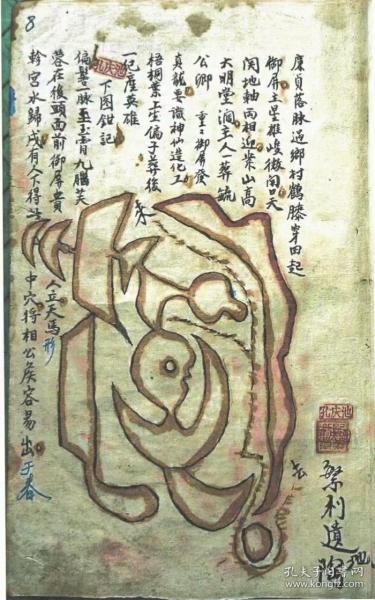 8
廉貞落脉過鄉村鶴膝穿田起
御屏主星雄峻微開口天
関地軸両相迎案山高
大明堂洞主人一葬疏
公卿 重二御屏發
真龍要識神仙造化工
梧桐葉上生偏子葬後
一紀產英雄
下图鉗記
偏鬂一脉玉玉霄九腦芙
蓉在後頭面前御屏貴
軫宮水歸戌有人下得此
中穴将相公矦容易出于春
人立天馬形
案
繁利遺陶
孔夫子旧书网
www.kongfz.com